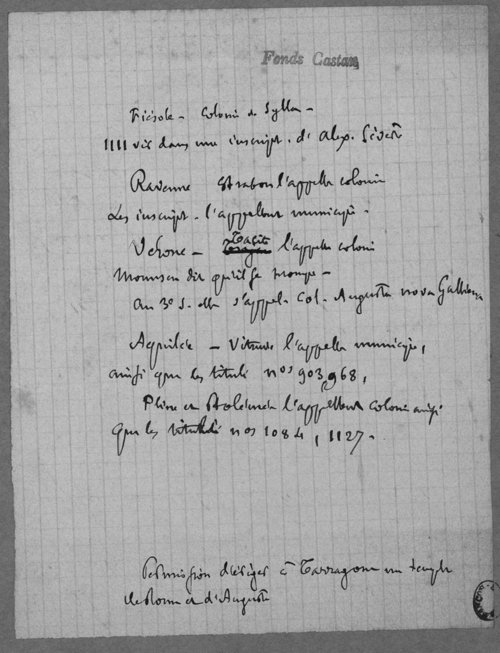 Fonds Castan
Fiésole - Colonie de Sylla -
IIII vir dans une inscript. d' Alex. Sévère
Ravenne Strabon l'appelle colonie
Les inscript. l'appellent municipe.
Vérone - Tacite l'appelle colonie
Mommsen dit qu'il se trompe -
au 3e s. elle s'appel. Col. Augusta nova Gallien
Aquilée - Vitruve l'appelle municipe,
ainsi que les tituli nos 903, 968,
Pline et Ptolémée l'appellent colonie ainsi
que les tituli nos 1084, 1127.
Permission d'ériger à Tarragone un temple
de Rome et d'Auguste